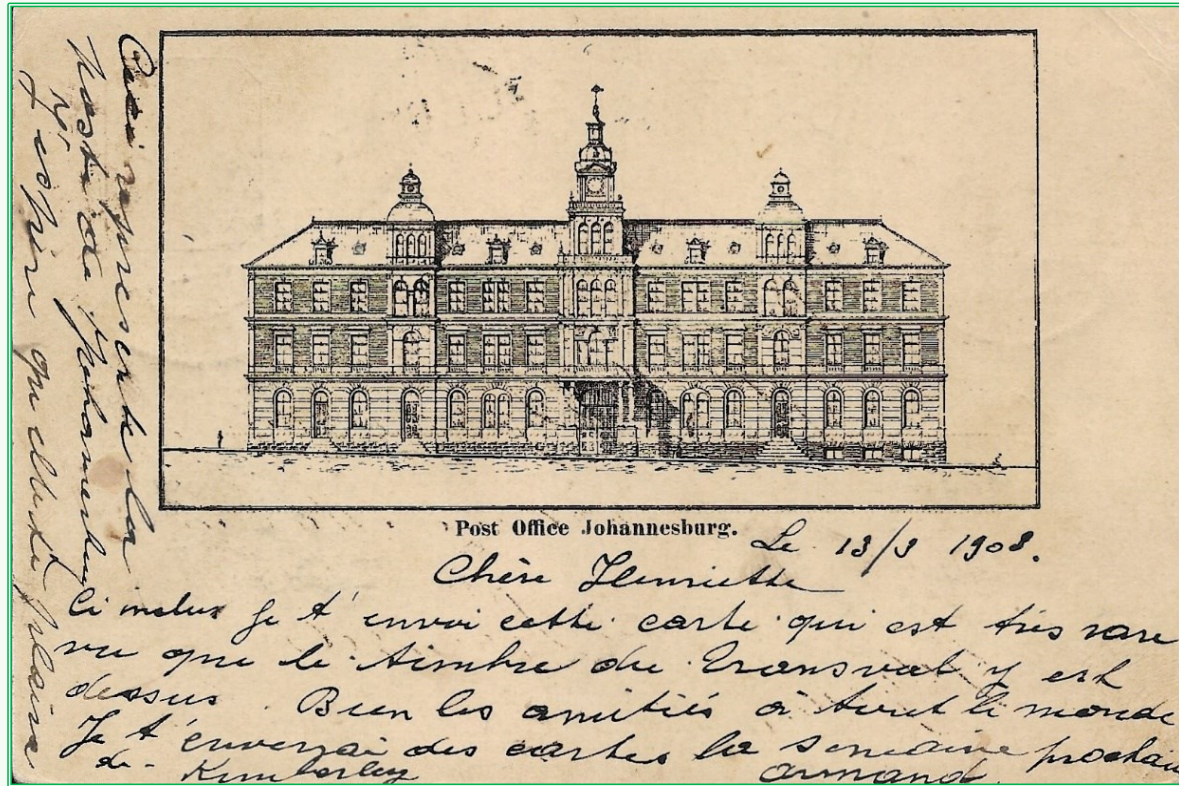 Post Office Johannesburg.
Le 13/3 1908.
Chère Henriette
Ci inclus Je t'envoi cette carte qui est très rare
vu que le timbre du Transval y est
dessus. Bien les amitiés à tout le monde
Je t'enverrai des cartes la semaine prochain
de - Kimberley armand
Ceci represente la
Poste de Johannesburg
J'éspère qu'elle te plaira